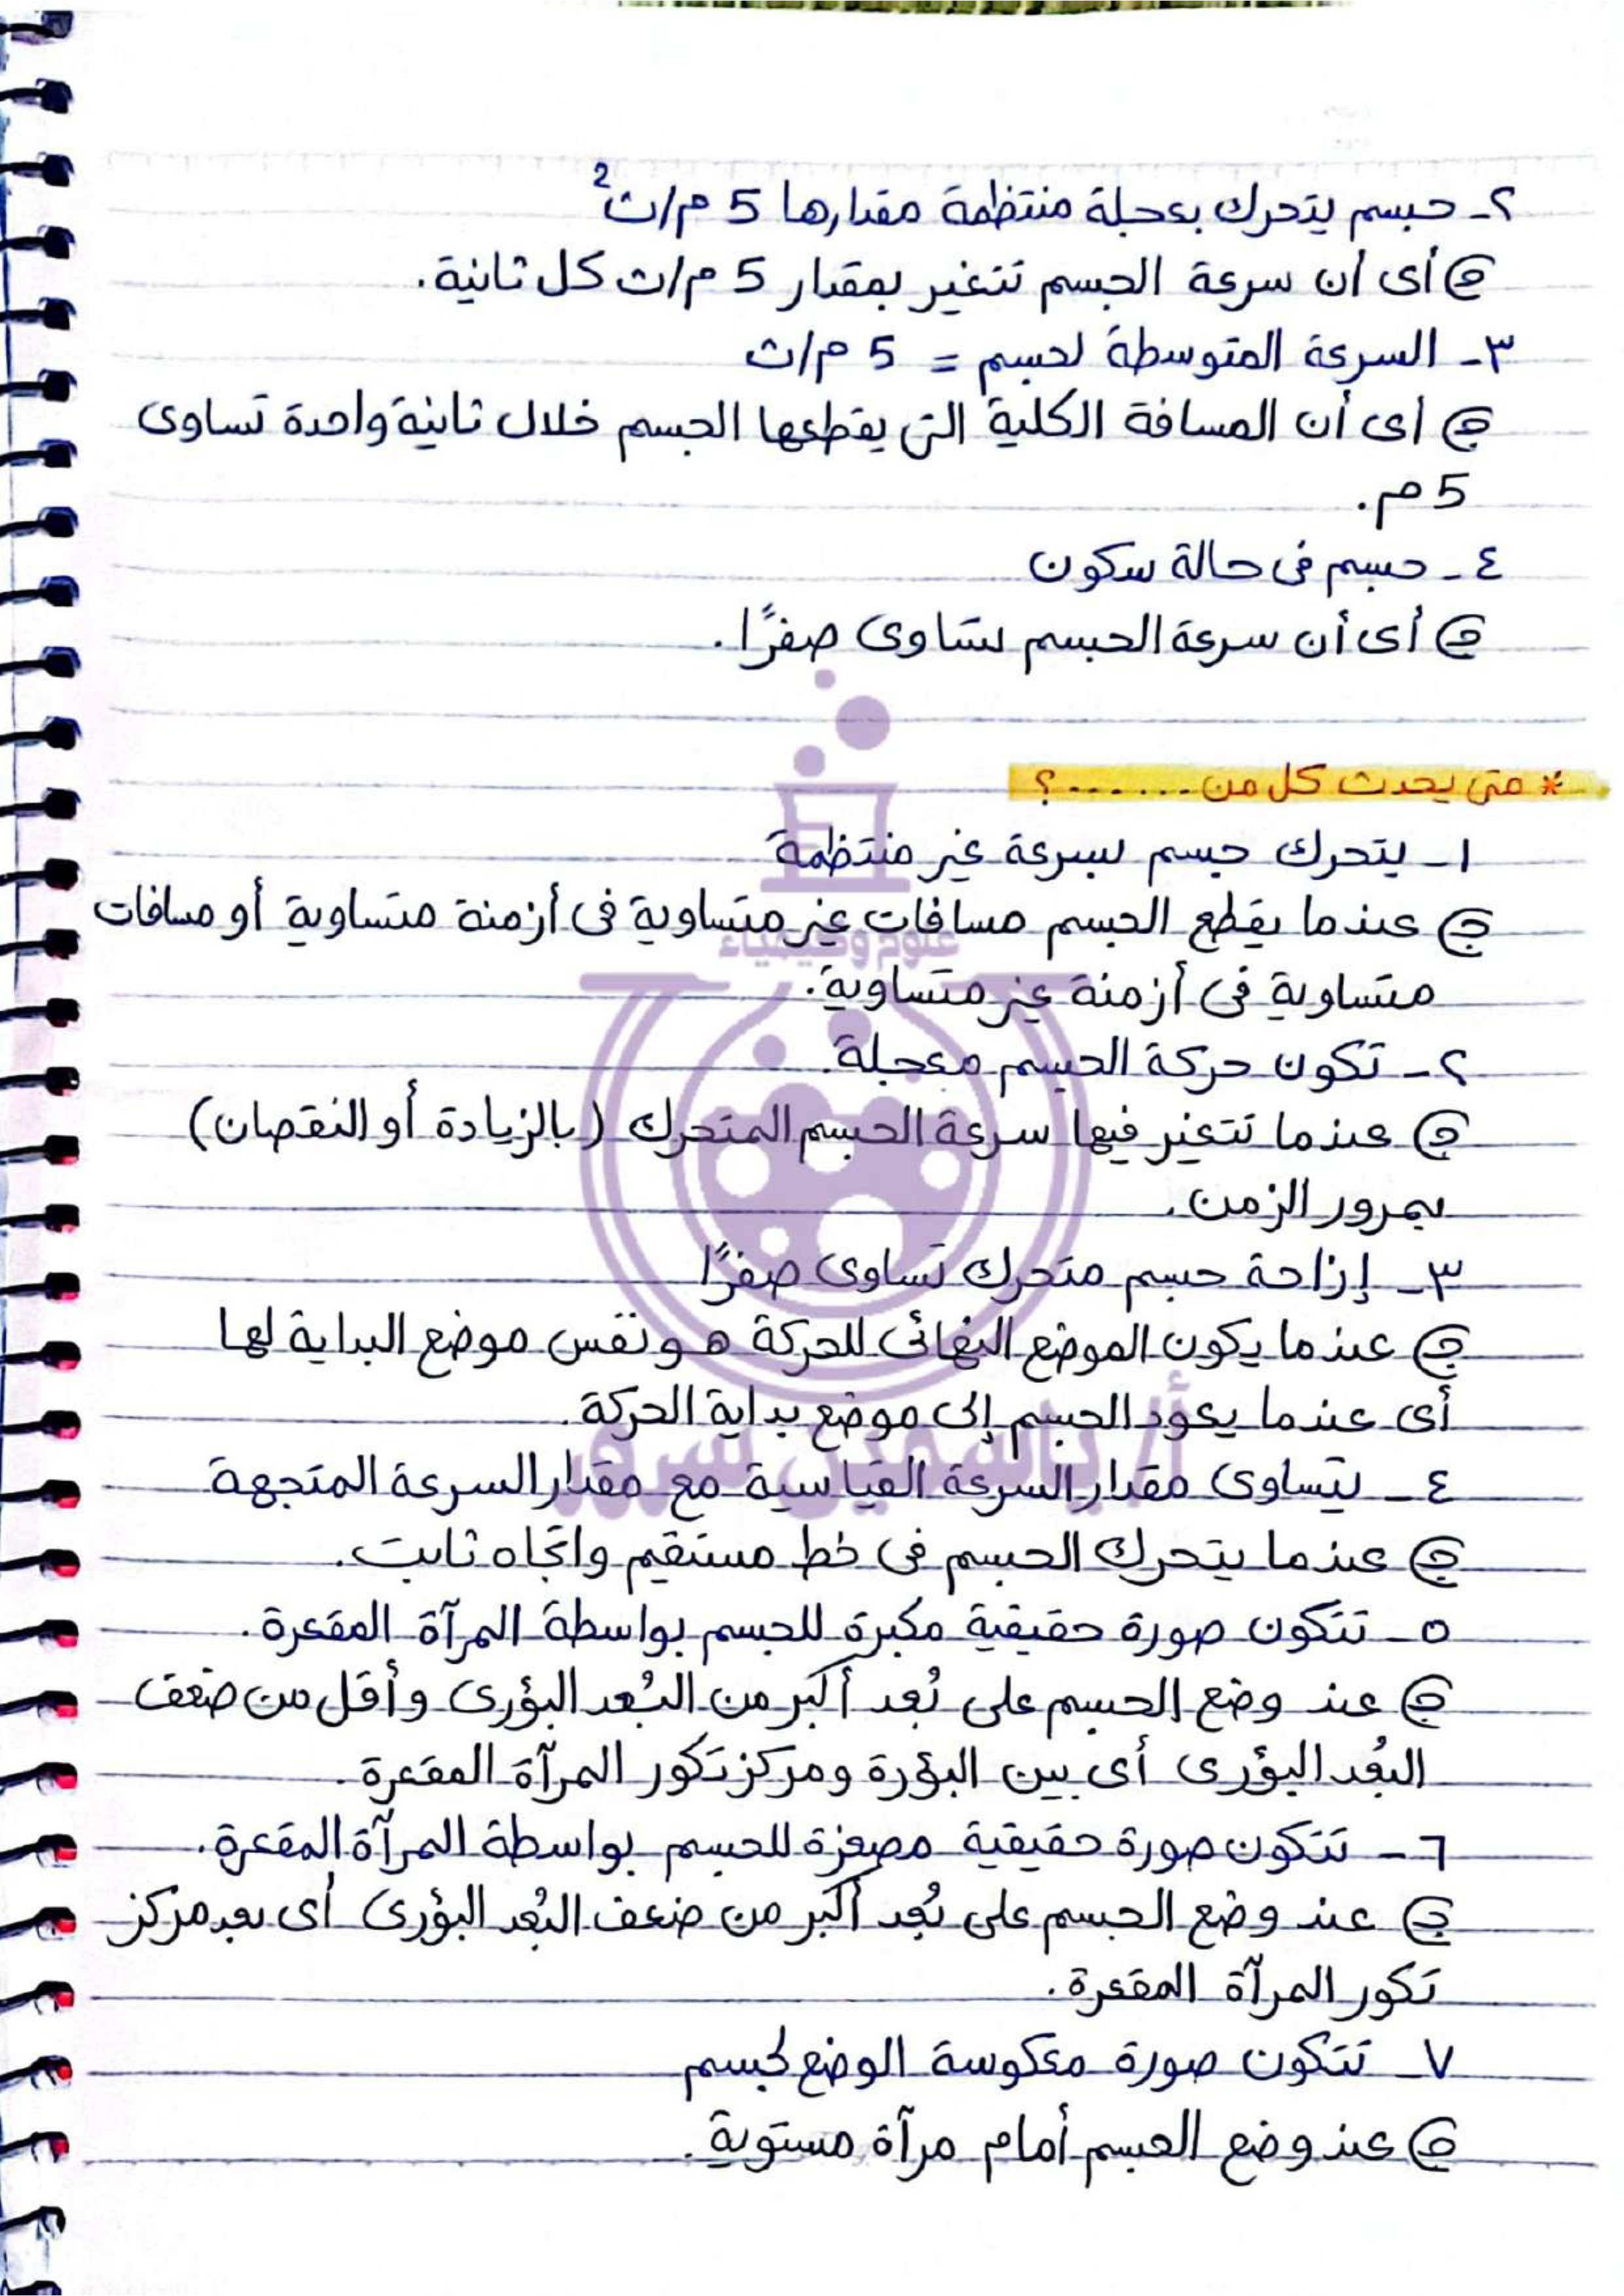 ٢- جسم يتحرك بعجلة منتظمة مقدارها 5 م/ث²
ج أى أن سرعة الجسم تتغير بمقدار 5 م/ث كل ثانية.
٣- السرعة المتوسطة لجسم = 5 م/ث
ج أى أن المسافة الكلية التى يقطعها الجسم خلال ثانية واحدة تساوى
5 م.
٤- جسم فى حالة سكون
ج أى أن سرعة الجسم تساوى صفرًا.
* متى يحدث كل من .......؟
١- يتحرك جسم بسرعة غير منتظمة
ج عندما يقطع الجسم مسافات غير متساوية فى أزمنة متساوية أو مسافات
متساوية فى أزمنة غير متساوية.
٢- تكون حركة الجسم معجلة.
ج عندما تتغير فيها سرعة الجسم المتحرك (بالزيادة أو النقصان)
بمرور الزمن.
٣- إزاحة جسم متحرك تساوى صفرًا
ج عندما يكون الموضع النهائى للحركة هو نفس موضع البداية لها
أى عندما يعود الجسم إلى موضع بداية الحركة.
٤- يتساوى مقدار السرعة القياسية مع مقدار السرعة المتجهة
ج عندما يتحرك الجسم فى خط مستقيم واتجاه ثابت.
٥- تتكون صورة حقيقية مكبرة للجسم بواسطة المرآة المقعرة.
ج عند وضع الجسم على بُعد أكبر من البُعد البؤرى وأقل من ضعف
البُعد البؤرى أى بين البؤرة ومركز تكور المرآة المقعرة.
٦- تتكون صورة حقيقية مصغرة للجسم بواسطة المرآة المقعرة.
ج عند وضع الجسم على بُعد أكبر من ضعف البُعد البؤرى أى بعد مركز
تكور المرآة المقعرة.
٧- تتكون صورة معكوسة الوضع لجسم
ج عند وضع الجسم أمام مرآة مستوية.
علوم وكيمياء
أ/ ياسمين سرور